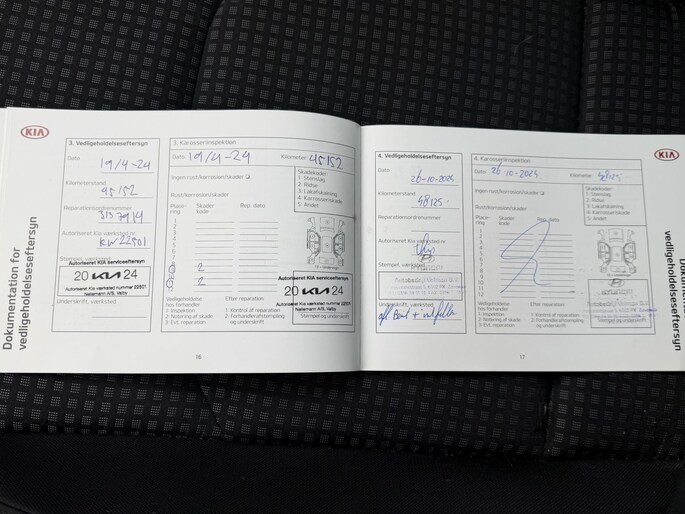 Dokumentation for
vedligeholdelseseftersyn
KIA
3. Vedligeholdelseseftersyn
Dato
19/4-24
Kilometerstand
45152
Reparationsordrenummer
Autoriseret Kia værksted nr.
KW22501
Stempel, værksted
Autoriseret KIA serviceeftersyn
20 KIA 24
Autoriseret Kia værksted nummer 22501
Nellemann A/S, Valby
Underskrift, værksted
3. Karosseriinspektion
Dato: 19/4-24
Kilometer: 45152
Ingen rust/korrosion/skader
Rust/korrosion/skader
Skadekoder:
1: Stenslag
2: Ridse
3: Lakafskalning
4: Karrosseriskade
5: Andet
Place-
ring
Skader
kode
Rep. dato
1
2
3
4
5
6
7
8 2
9 2
Vedligeholdelse
hos forhandler
1: Inspektion
2: Notering af skade
3: Evt. reparation
Efter reparation
1: Kontrol af reparation
2: Forhandlerafstempling
og underskrift
Autoriseret KIA serviceeftersyn
20 KIA 24
Autoriseret Kia værksted nummer 22501
Nellemann A/S, Valby
Stempel og underskrift
16
KIA
4. Vedligeholdelseseftersyn
Dato
26-10-2024
Kilometerstand
48125.
Reparationsordrenummer
Autoriseret Kia værksted nr.
Stempel, værksted
Underskrift, værksted
4. Karosseriinspektion
Dato: 26 10-2024
Kilometer: 48125.
Ingen rust/korrosion/skader
Rust/korrosion/skader
Skadekoder:
1: Stenslag
2: Ridse
3: Lakafskalning
4: Karrosseriskade
5: Andet
Place-
ring
Skader
kode
Rep. dato
1
2
3
4
5
6
7
8
9
10
11
Vedligeholdelse
hos forhandler
1: Inspektion
2: Notering af skade
3: Evt. reparation
Efter reparation
1: Kontrol af reparation
2: Forhandlerafstempling
og underskrift
Stempel og underskrift
17
vedligeholdelseseftersyn